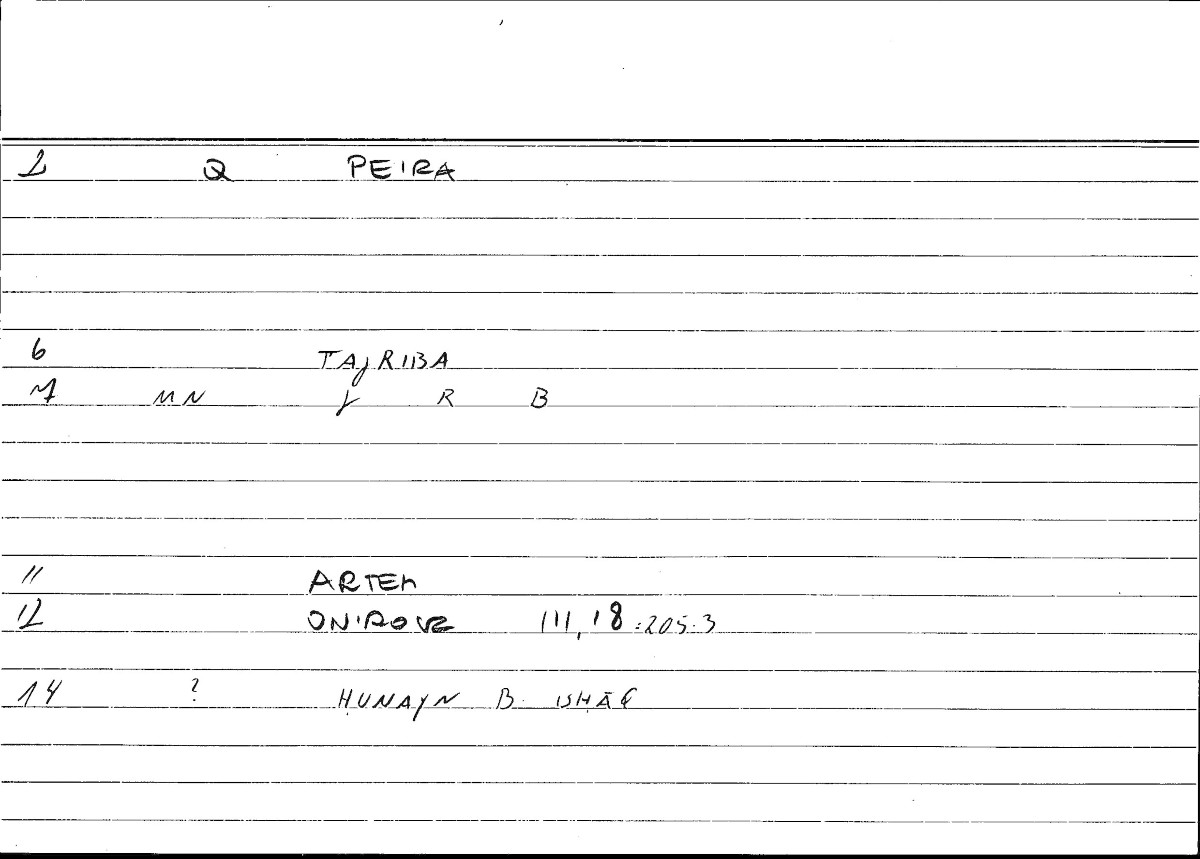 2 Q PEIRA
6 TAJRIBA
7 MN J R B
11 ARTEM
12 ONIROCR III, 18 :205.3
14 ? ḤUNAYN B. ISḤĀQ